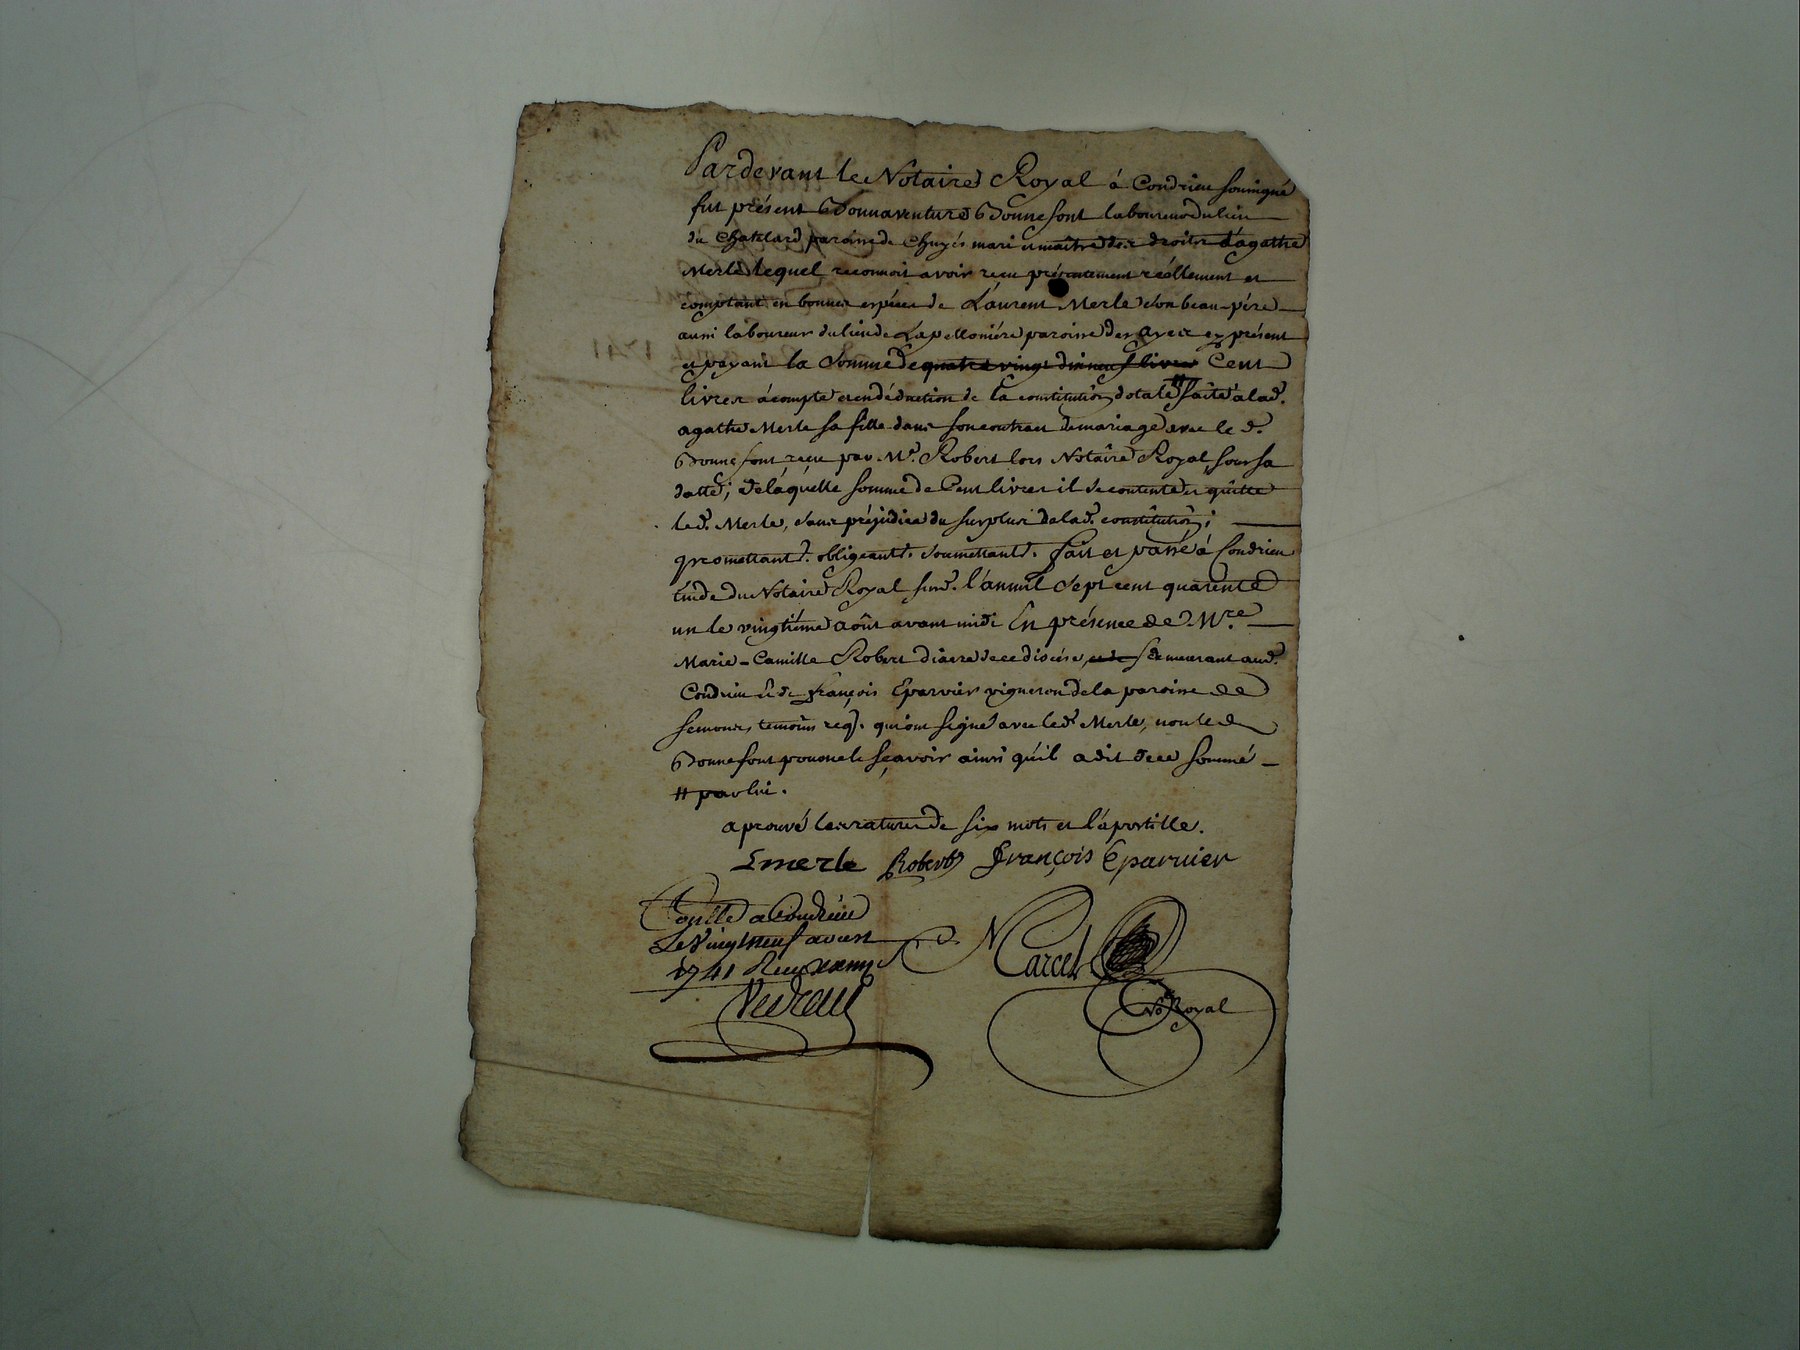 Pardevant le Notaire Royal à Condrieu soussigné
fut présent Bonnaventure Bonnefont laboureur du lieu
du Chatelard paroisse de Chuyés mari et maître des droits d'agathe
Merle lequel reconnoit avoir reçu présentement réellement et
comptant en bonnes espéces de Laurent Merle son beau-pére
aussi laboureur du lieu de Lapelloniére paroisse des ayes cy présent
et payant la somme de quatre vingt dix neuf livres Cent
livres à compte et en déduction de la constitution dotale # faite à lad.
agathe Merle sa fille dans son contract de mariage avec le d.
Bonnefont reçu par Me. Robert lors Notaire Royal sous sa
datte; de laquelle somme de Cent livres il se contente et quitte
led. Merle, sans préjudice du surplus de lad. constitution;
promettant. obligeant. soumettant. fait et passé à Condrieu
étude du Notaire Royal sus d. l'an mil sept cent quarente
un le vingtiéme août avant midi En présence de Mre
Marie-Camille Robert diacre de ce diocése, demeurant aud.
Condrieu & de françois Eparvier vigneron de la paroisse de
semons temoins req. qui ont signé avec led. Merle, non le d
Bonnefont pour ne le sçavoir ainsi qu'il a dit de ce sommé
# par lui.
aprouvé les ratures de six mots et l'apostille.
Lmerle Robert françois Eparvier
Conllé a Condrieu
Le Vingt neuf aoust
1741 Reçu
Marcel
No Royal